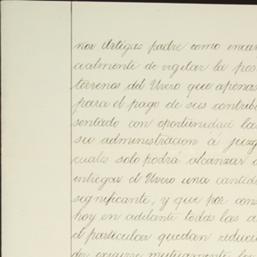 nor Artigas padre como encar
cialmente de vigilar la pose
terrenos del Uvero que apenas
para el pago de sus contribu
sentado con oportunidad la
su administracion à juzg
cuales solo podrá alcanzar a
entregar el Uvero una cantid
significante, y que por cons
hoy en adelante todas las a
el particular quedan reduci
de exigirse mutuamente los